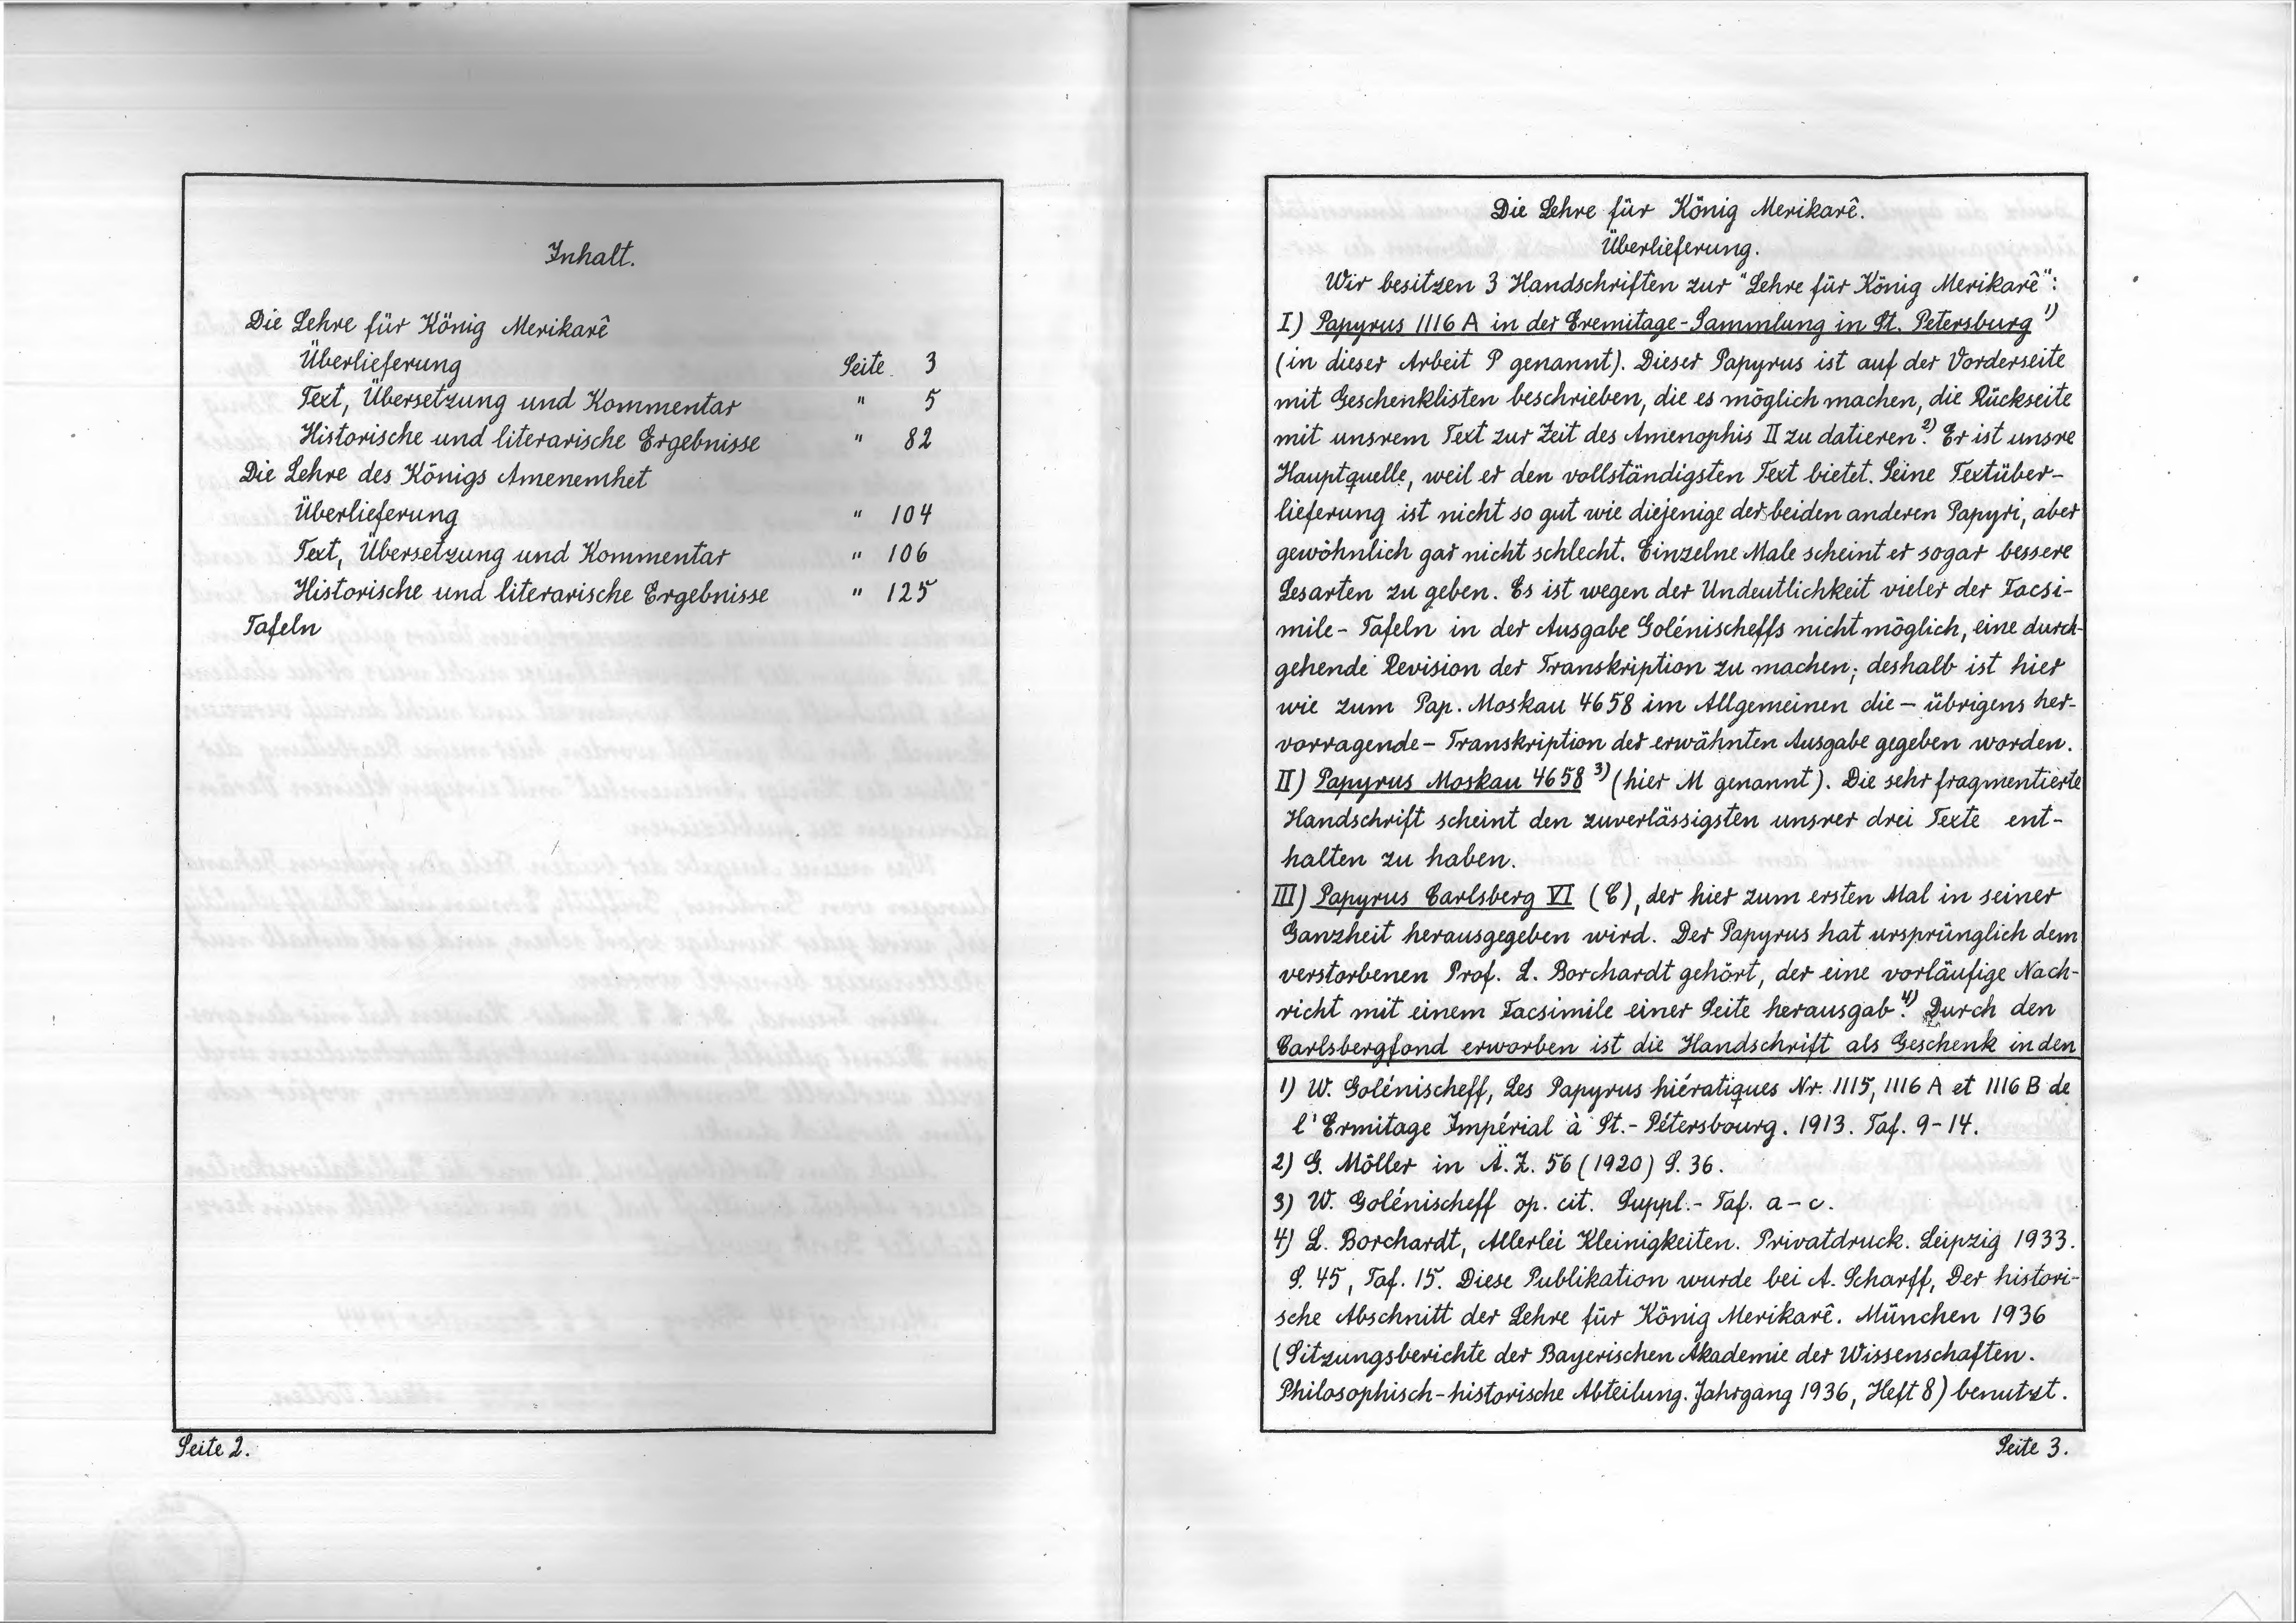 Inhalt.
Die Lehre für König Merikarê
Überlieferung Seite 3
Text, Übersetzung und Kommentar " 5
Historische und literarische Ergebnisse " 82
Die Lehre des Königs Amenemhet
Überlieferung " 104
Text, Übersetzung und Kommentar " 106
Historische und literarische Ergebnisse " 125
Tafeln
Seite 2.
Die Lehre für König Merikarê.
Überlieferung.
Wir besitzen 3 Handschriften zur "Lehre für König Merikarê":
I) Papyrus 1116 A in der Eremitage-Sammlung in St. Petersburg 1)
(in dieser Arbeit P genannt). Dieser Papyrus ist auf der Vorderseite
mit Geschenklisten beschrieben, die es möglich machen, die Rückseite
mit unsrem Text zur Zeit des Amenophis II zu datieren.2) Er ist unsre
Hauptquelle, weil er den vollständigsten Text bietet. Seine Textüber-
lieferung ist nicht so gut wie diejenige der beiden anderen Papyri, aber
gewöhnlich gar nicht schlecht. Einzelne Male scheint er sogar bessere
Lesarten zu geben. Es ist wegen der Undeutlichkeit vieler der Facsi-
mile-Tafeln in der Ausgabe Golénischeffs nicht möglich, eine durch-
gehende Revision der Transkription zu machen; deshalb ist hier
wie zum Pap. Moskau 4658 im Allgemeinen die – übrigens her-
vorragende – Transkription der erwähnten Ausgabe gegeben worden.
II) Papyrus Moskau 4658 3) (hier M genannt). Die sehr fragmentierte
Handschrift scheint den zuverlässigsten unsrer drei Texte ent-
halten zu haben.
III) Papyrus Carlsberg VI (C), der hier zum ersten Mal in seiner
Ganzheit herausgegeben wird. Der Papyrus hat ursprünglich dem
verstorbenen Prof. L. Borchardt gehört, der eine vorläufige Nach-
richt mit einem Facsimile einer Seite herausgab.4) Durch den
Carlsbergfond erworben ist die Handschrift als Geschenk in den
1) W. Golénischeff, Les Papyrus hiératiques Nr. 1115, 1116 A et 1116 B de
l'Ermitage Impérial à St.-Pétersbourg. 1913. Taf. 9-14.
2) G. Möller in Ä.Z. 56 (1920) S. 36.
3) W. Golénischeff op. cit. Suppl.-Taf. a-c.
4) L. Borchardt, Allerlei Kleinigkeiten. Privatdruck. Leipzig 1933.
S. 45, Taf. 15. Diese Publikation wurde bei A. Scharff, Der histori-
sche Abschnitt der Lehre für König Merikarê. München 1936
(Sitzungsberichte der Bayerischen Akademie der Wissenschaften.
Philosophisch-historische Abteilung. Jahrgang 1936, Heft 8) benutzt.
Seite 3.